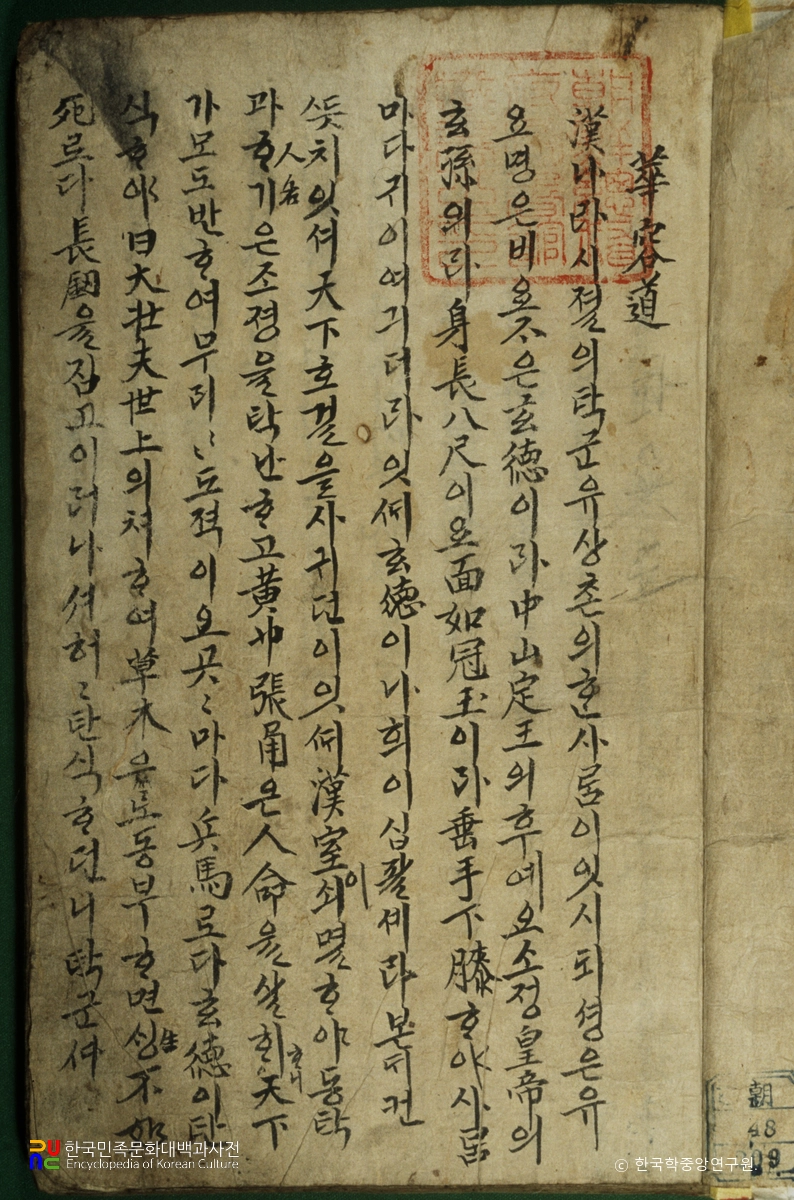 華容道
漢나라 시졀의 탁군 유상촌의 한 사람이 잇시되 셩은 유
요 명은 비요 字은 玄德이라 中山定王의 후예요 소정皇帝의
玄孫의라 身長八尺이요 面如冠玉이라 垂手下膝하야 사람
마다 귀이 여긔더라 잇 玄德이 나희 이십팔셰라 본디 컨
치 잇셔 天下호걸을 사귀던이 잇 漢室이 쇠멸하야 동탁
과 하기人名은 조졍을 탁난하고 黃巾張角은 人命을 살하니 天下
가 모도 반하여 무리〻 도젹이요 곳〻마다 兵馬로다 玄德이 탄
식하야 曰 大丈夫世上의 쳐하여 草木을 동부하면 生不
死로다 長劍을 집고 이러나셔 허〻탄식하더니 탁군
朝
48
09
한국민족문화대백과사전
Encyclopedia of Korean Culture
© 한국학중앙연구원